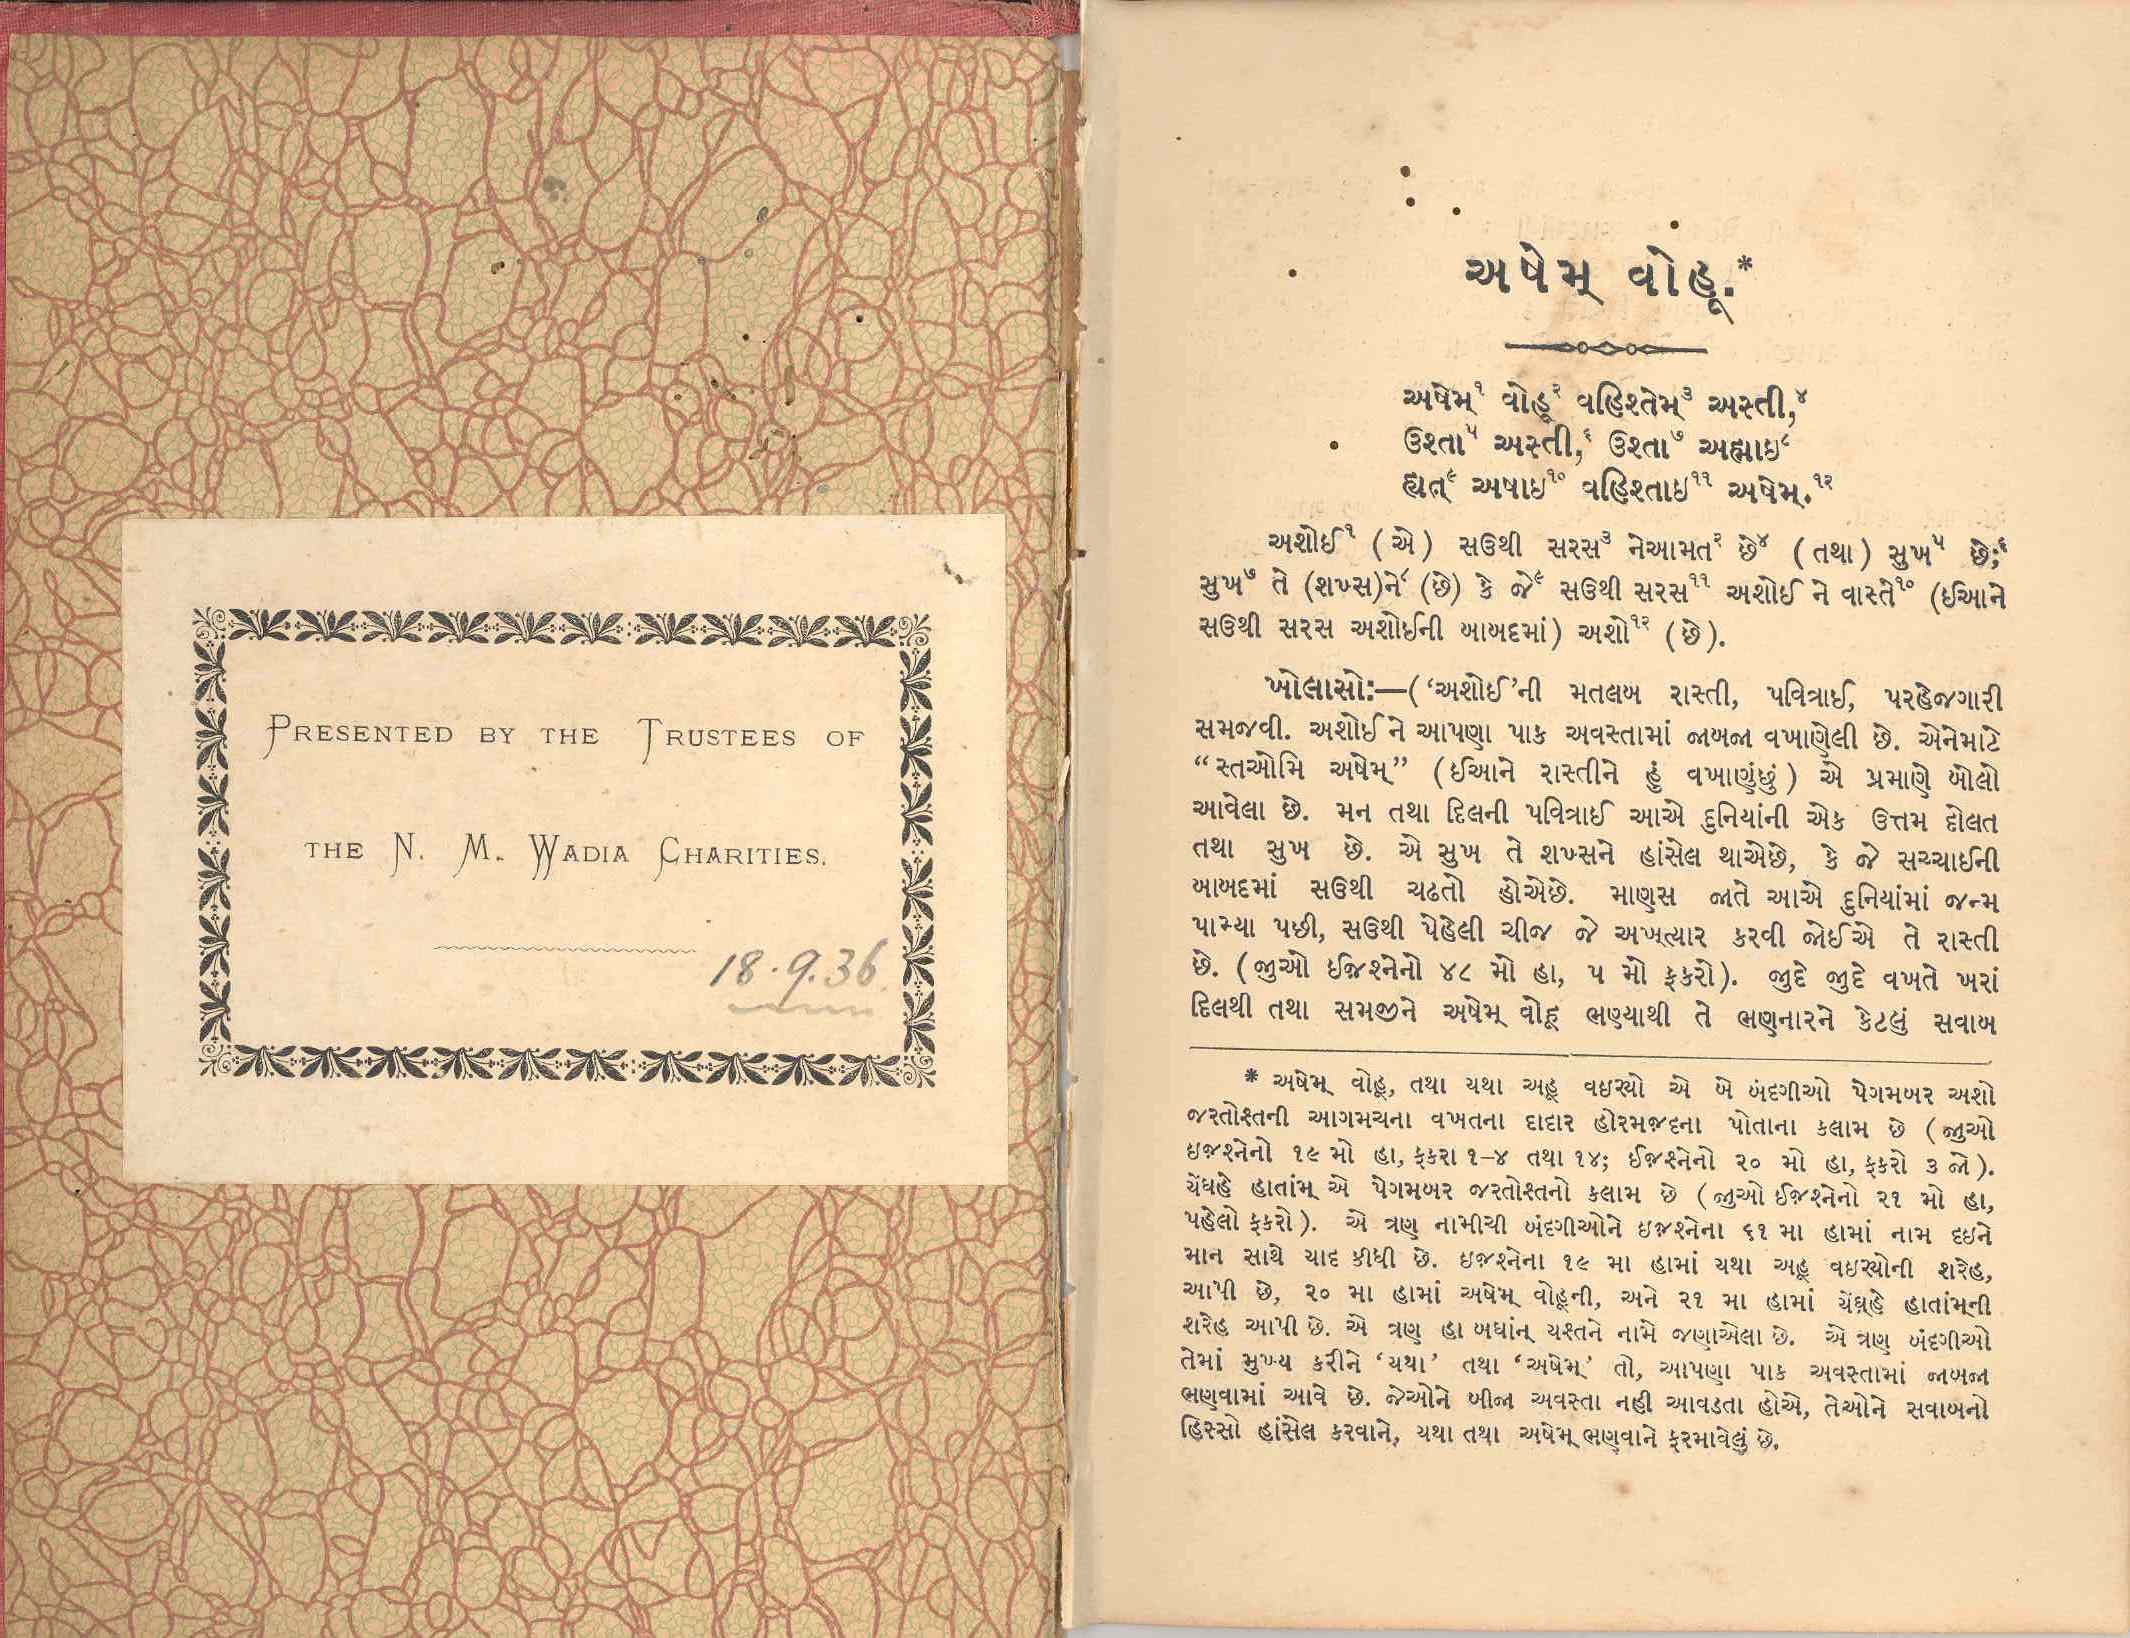 PRESENTED BY THE TRUSTEES OF
THE N. M. WADIA CHARITIES.
18.9.36.
અષેમ્ વોહૂ.*
અષેમ્૧ વોહૂ૨ વહિશ્તેમ્૩ અસ્તી,૪
ઉશ્તા૫ અસ્તી,૬ ઉશ્તા૭ અહ્માઇ૮
હ્યત્૯ અષાઇ૧૦ વહિશ્તાઇ૧૧ અષેમ્.૧૨
અશોઈ૧ (એ) સઉથી સરસ૩ નેઆમત૨ છે૪ (તથા) સુખ૫ છે;૬
સુખ૭ તે (શખ્સ)ને૮ (છે) કે જે૯ સઉથી સરસ૧૧ અશોઈ ને વાસ્તે૧૦ (ઈઆને
સઉથી સરસ અશોઈની બાબદમાં) અશો૧૨ (છે).
ખોલાસો:—(‘અશોઈ’ની મતલબ રાસ્તી, પવિત્રાઈ, પરહેજગારી
સમજવી. અશોઈ ને આપણા પાક અવસ્તામાં જાબજા વખાણેલી છે. એનેમાટે
“સ્તઓમિ અષેમ્” (ઈઆને રાસ્તીને હું વખાણુંછું) એ પ્રમાણે બોલો
આવેલા છે. મન તથા દિલની પવિત્રાઈ આએ દુનિયાંની એક ઉત્તમ દોલત
તથા સુખ છે. એ સુખ તે શખ્સને હાંસેલ થાએછે, કે જે સચ્ચાઈની
બાબદમાં સઉથી ચઢતો હોએછે. માણસ જાતે આએ દુનિયાંમાં જન્મ
પામ્યા પછી, સઉથી પેહેલી ચીજ જે અખ્ત્યાર કરવી જોઈએ તે રાસ્તી
છે. (જુઓ ઈજ઼શ્નેનો ૪૮ મો હા, ૫ મો ફકરો). જુદે જુદે વખતે ખરાં
દિલથી તથા સમજીને અષેમ્ વોહૂ ભણ્યાથી તે ભણનારને કેટલું સવાબ
* અષેમ્ વોહૂ, તથા યથા અહૂ વઇર્યો એ બે બંદગીઓ પેગમબર અશો
જરતોશ્તની આગમચના વખતના દાદાર હોરમજ઼દના પોતાના કલામ છે (જુઓ
ઇજ઼શ્નેનો ૧૯ મો હા, ફકરા ૧–૪ તથા ૧૪; ઈજ઼શ્નેનો ૨૦ મો હા, ફકરો ૩ જો).
યેંઘહે હાતાંમ્ એ પેગમબર જરતોશ્તનો કલામ છે (જુઓ ઈજ઼શ્નેનો ૨૧ મો હા,
પહેલો ફકરો). એ ત્રણ નામીચી બંદગીઓને ઇજ઼શ્નેના ૬૧ મા હામાં નામ દઇને
માન સાથે યાદ કીધી છે. ઇજ઼શ્નેના ૧૯ મા હામાં યથા અહૂ વઇર્યોની શરેહ,
આપી છે, ૨૦ મા હામાં અષેમ્ વોહૂની, અને ૨૧ મા હામાં યેંઘ્હે હાતાંમ્ની
શરેહ આપી છે. એ ત્રણ હા બઘાંન્ યશ્તને નામે જણાએલા છે. એ ત્રણ બંદગીઓ
તેમાં મુખ્ય કરીને ‘યથા’ તથા ‘અષેમ્’ તો, આપણા પાક અવસ્તામાં જાબજા
ભણવામાં આવે છે. જેઓને બીજા અવસ્તા નહી આવડતા હોએ, તેઓને સવાબનો
હિસ્સો હાંસેલ કરવાને, યથા તથા અષેમ્ ભણવાને ફરમાવેલું છે.